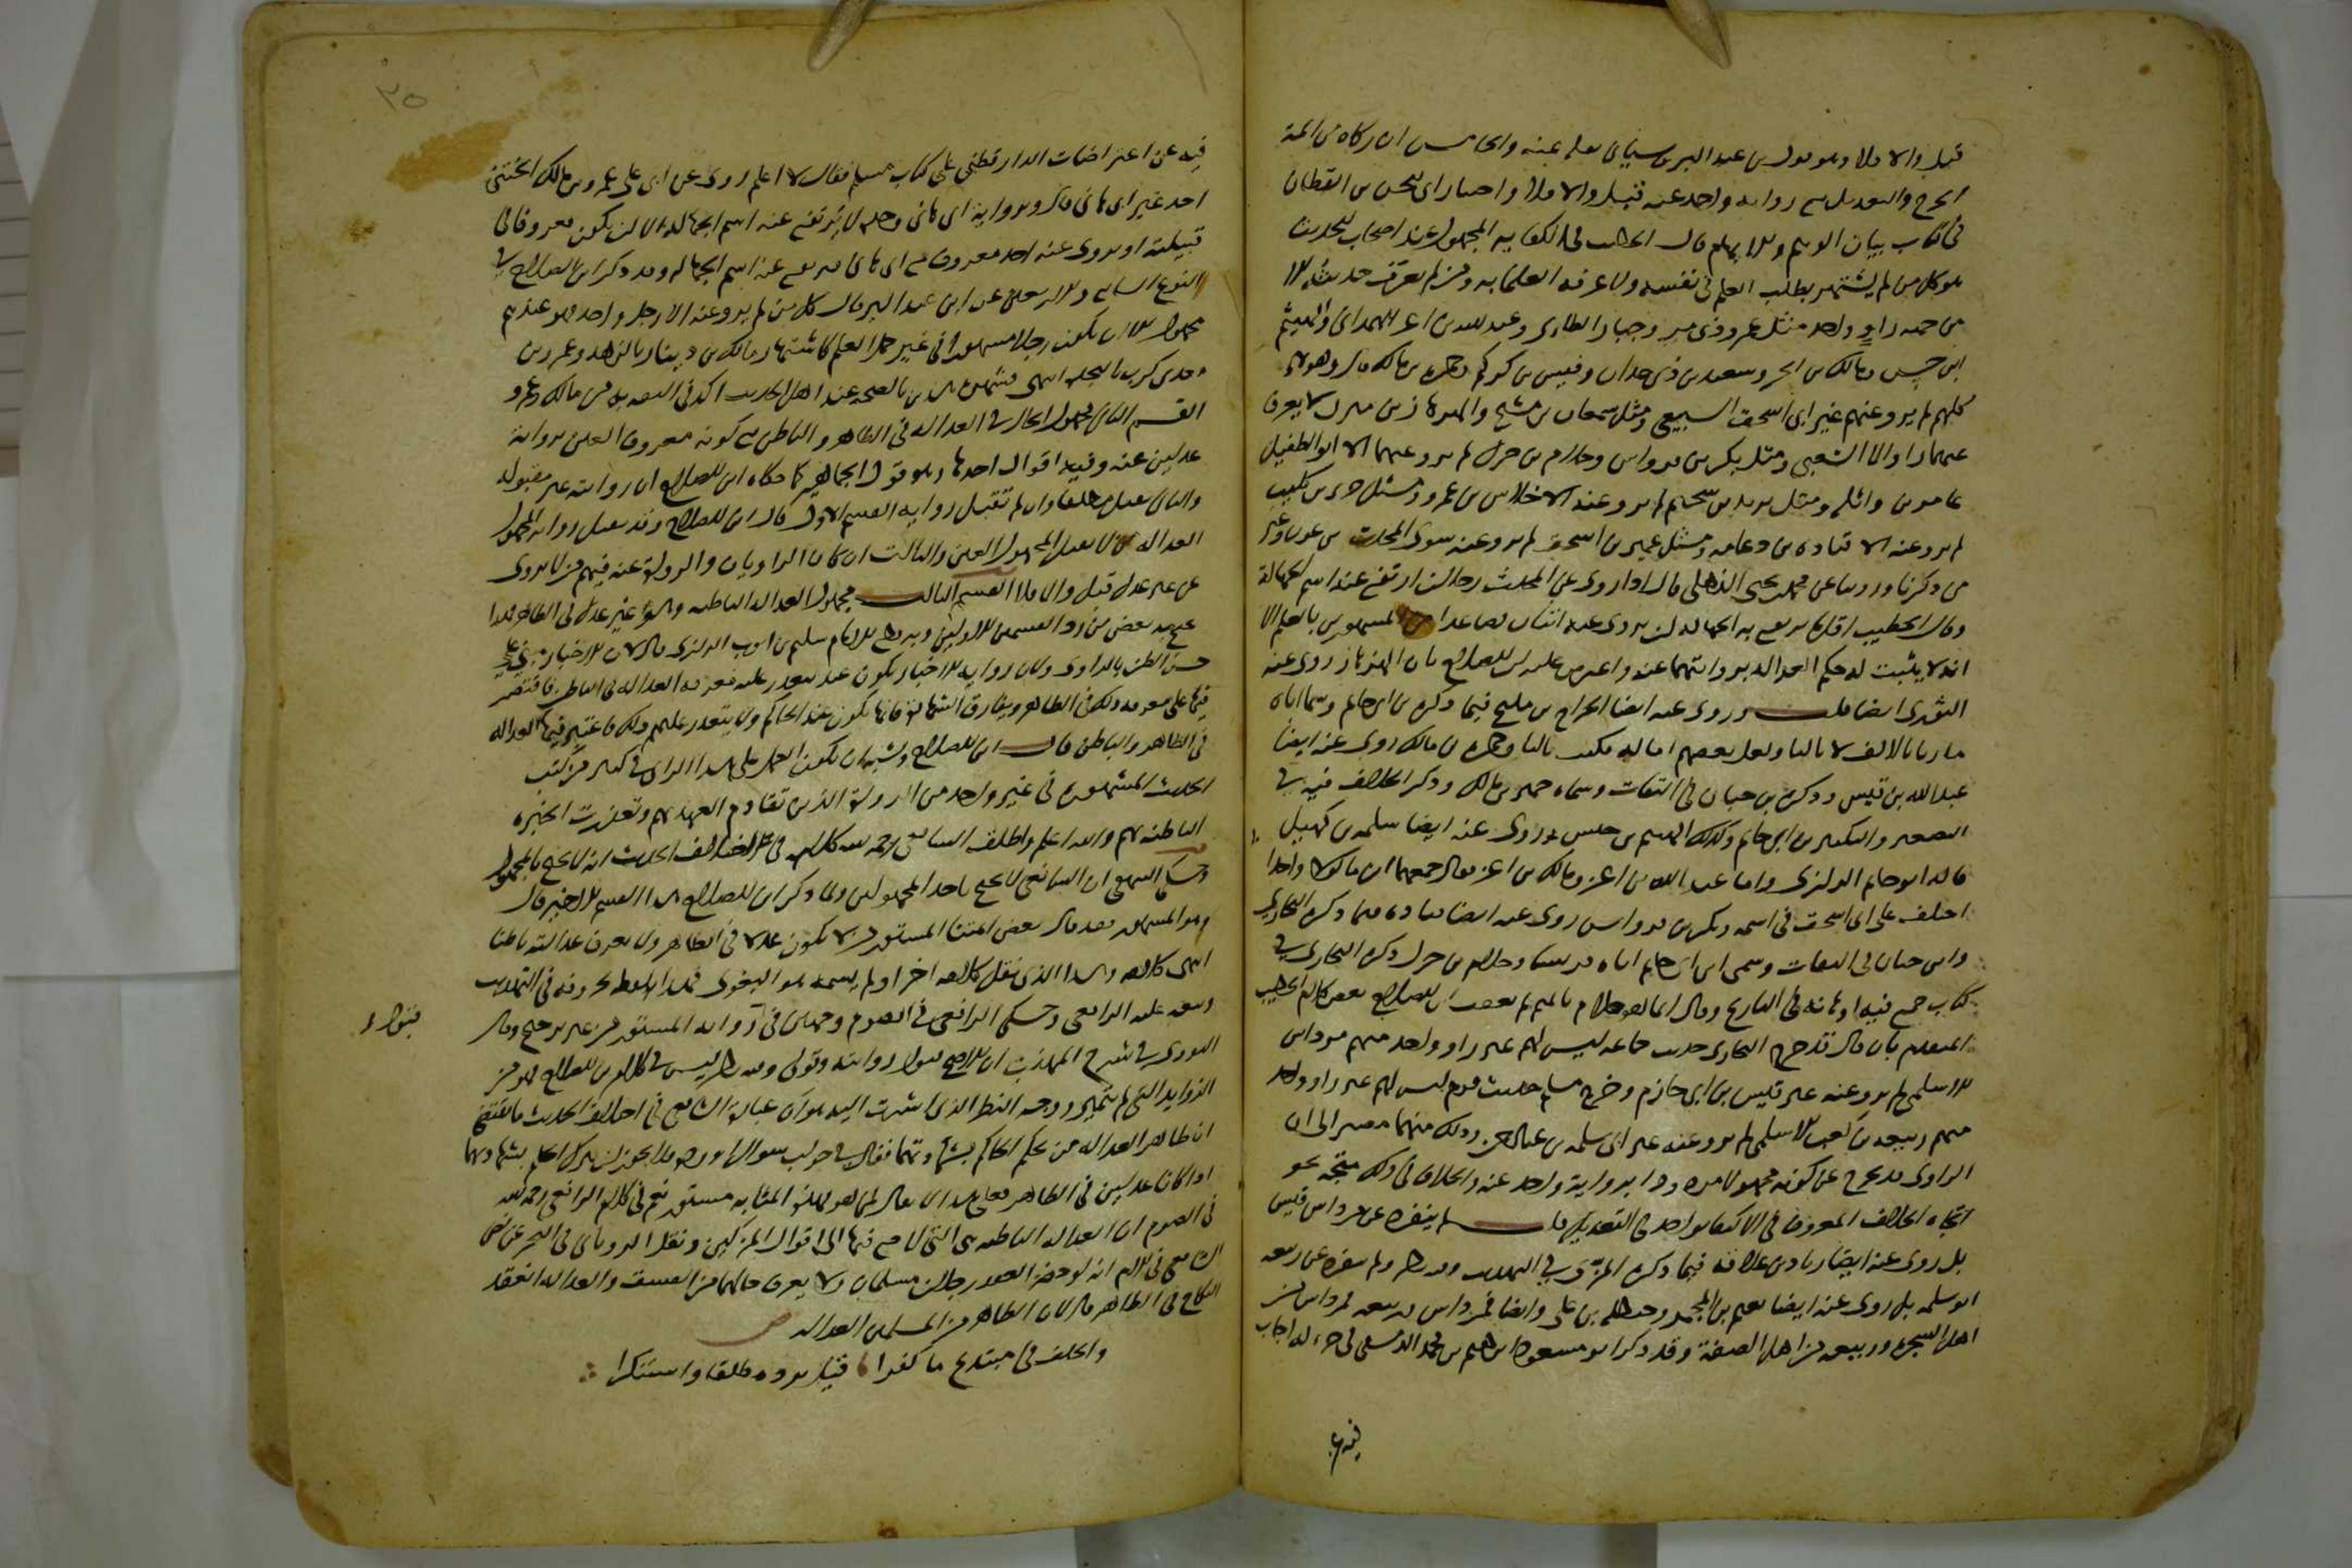 قبل والا فلا وهو قول بن عبد البر وسياتى نقله عنه والخامس ان زكاه من ائمة
الجرح والتعديل مع روايه واحد عنه قبل والا فلا وهو اختيار ابى الحسن بن القطان
فى كتاب بيان الوهم والايهام قال الخطيب فى الكفايه المجهول عند اصحاب الحديث
هو كل من لم يشتهر بطلب العلم فى نفسه ولا عرفه العلما به ومن لم يعرف حديثه الا
من جهه راو واحد مثل عمرو ذى مر وجبار الطاى وعبد الله بن اعز الهمدانى والهيثم
ابن حنش ومالك بن اعز وسعيد بن ذى حدان وقيس بن كركم وخمر بن مالك قال وهولا
كلهم لم يرو عنهم غير ابى اسحق السبيعى ومثل سمعان بن مشنج والهزهاز بن ميزن لا يعرف
عنهما راو الا الشعبى ومثل بكر بن قرواش وحلام بن جزل لم يرو عنهما الا ابو الطفيل
عامر بن واثله ومثل يزيد بن سحيم لم يرو عنه الا خلاس بن عمرو ومثل جرى بن كليب
لم يرو عنه الا قتاده بن دعامه ومثل عمير بن اسحق لم يرو عنه سوى عبد الله بن عون وغير
من ذكرنا وروينا عن محمد بن يحيى الذهلى قال اذا روى عن المحدث رجلان ارتفع عنه اسم الجهالة
وقال الخطيب اقل ما ترتفع به الجهاله ان يروى عنه اثنان فصاعدا من المشهورين بالعلم الا
انه لا يثبت له حكم العداله بروايتهما عنه واعترض عليه بن الصلاح بان الهزهاز روى عنه
الثورى ايضا قلت وروى عنه ايضا الجراح بن مليح فيما ذكره بن ابى حاتم وسما اباه
مازنا بالالف لا باليا ولعل بعضهم اماله فكتب باليا وخمر بن مالك روى عنه ايضا
عبد الله بن قيس وذكره بن حبان فى الثقات وسماه خمير بن مالك وذكر الخلاف فيه فى
التصغير والتكبير بن ابى حاتم وكذلك الهيثم بن حنش روى عنه ايضا سلمه بن كهيل
قاله ابو حاتم الرازى واما عبد الله بن اعز ومالك بن اعز فقال جمعهما ابن ماكولا واحدا
اختلف على ابى اسحق فى اسمه وبكر بن قرواش روى عنه ايضا قتاده فيما ذكره البخارى
وابن حبان فى الثقات وسمى ابن ابى حاتم اباه قريشا وحلام بن جزل ذكره البخارى فى
كتاب جمع فيه اوهامه فى التاريخ وقال انما هو حلام بالميم ثم تعقب بن الصلاح بعض كلام الخطيب
المتقدم بان قال قد خرج البخارى حديث جماعه ليس لهم غير راو واحد منهم مرداس
الاسلمى لم يرو عنه غير قيس بن ابى حازم وخرج مسلم حديث قوم ليس لهم غير راو واحد
منهم ربيعه بن كعب الاسلمى لم يرو عنه غير ابى سلمه بن عبد الرحمن وذلك منهما مصير الى ان
الراوى قد يخرج عن كونه مجهولا مردودا برواية واحد عنه والخلاف فى ذلك متجه نحو
اتجاه الخلاف المعروف فى الاكتفا بواحد فى التعديل قلت لم ينفرد عن مرداس قيس
بل روى عنه ايضا زياد بن علاقه فيما ذكره المزى فى التهذيب وفيه نظر ولم ينفرد عن ربيعه
ابو سلمه بل روى عنه ايضا نعيم بن المجمر وحنظله بن على وايضا فمرداس وربيعه فمرداس من
اهل الشجرة وربيعه من اهل الصفة وقد ذكر ابو مسعود ابراهيم بن محمد الدمشقى فى جزء له اجاب
فيه عن
٢٥
فيه عن اعتراضات الدارقطنى على كتاب مسلم فقال لا اعلم روى عن ابى على عمرو بن مالك الجنبى
احد غير ابى هانى قال وبرواية ابى هانى وحده لا يرتفع عنه اسم الجهاله الا ان يكون معروفا فى
قبيلته او يروى عنه احد معروف مع ابى هانى فيرتفع عنه اسم الجهاله وقد ذكر ابن الصلاح فى
النوع السابع والاربعين عن ابن عبد البر قال كل من لم يرو عنه الا رجل واحد فهو عندهم
مجهول الا ان يكون رجلا مشهورا فى غير حمل العلم كاشتهار مالك بن دينار بالزهد وعمرو بن
معدى كرب بالنجده انتهى فشهره هذين بالصحبه عند اهل الحديث اكد فى الثقه به من مالك وعمرو
القسم الثانى مجهول الحال فى العداله فى الظاهر والباطن مع كونه معروف العين برواية
عدلين عنه وفيه اقوال احدها وهو قول الجماهير كما حكاه ابن الصلاح ان روايته غير مقبوله
والثانى تقبل مطلقا وان لم تقبل روايه القسم الاول قال ابن الصلاح وقد يقبل روايه المجهول
العداله من لا يقبل المجهول العين والثالث ان كان الراويان والرواة عنه فيهم من لا يروى
عن غير عدل قبل والا فلا القسم الثالث مجهول العداله الباطنه وهو عدل فى الظاهر فهذا
يحتج به بعض من رد القسمين الاولين وبه قطع الامام سليم بن ايوب الرازى قال لان الاخبار مبنى على
حسن الظن بالراوى ولان روايه الاخبار تكون عند من يتعذر عليه معرفه العداله فى الباطن فاقتصر
فيها على معرفه ذلك فى الظاهر ويفارق الشهادة فانها تكون عند الحاكم ولا يتعذر عليهم ذلك فاعتبر فيها العداله
فى الظاهر والباطن قال ابن الصلاح ويشبه ان يكون العمل على هذا الراى فى كثير من كتب
الحديث المشهورة فى غير واحد من الرواة الذين تقادم العهد بهم وتعذرت الخبره
الباطنه بهم والله اعلم واطلق الشافعى رحمه الله كلامه فى اختلاف الحديث انه لا يحتج بالمجهول
وحكى البيهقى ان الشافعى لا يحتج باحد المجهولين ولما ذكر ابن الصلاح هذا القسم الاخير قال
وهو المستور فقد قال بعض ائمتنا المستور من يكون عدلا فى الظاهر ولا يعرف عدالته باطنا
انتهى كلامه وهذا الذى نقل كلامه اخرا ولم يسمه هو البغوى فهذا لفظه بحروفه فى التهذيب
وتبعه عليه الرافعى وحكى الرافعى فى الصوم وجهين فى روايه المستور من غير ترجيح وقال
قبول
النووى فى شرح المهذب ان الاصح قبول روايته وقولى وفيه نظر ليس فى كلام بن الصلاح فهو من
الزوايد التى لم تتميز ووجه النظر الذى اشرت اليه هو ان عبارة الشافعى فى اختلاف الحديث ما يقتضى
ان ظاهرى العداله من يحكم الحاكم بشهادتهما فقال فى جواب سوال اورده فلا يجوز ان يترك الحكم بشهادتهما
اذا كانا عدلين فى الظاهر فعلى هذا لا يقال لمن هو بهذه المثابه مستور نعم فى كلام الرافعى رحمه الله
فى الصوم ان العداله الباطنه هى التى يرجع فيها الى اقوال المزكين ونقل الرويانى فى البحر عن نص
الشافعى فى الام انه لو حضر العقد رجلان مسلمان ولا يعرف حالهما من الفسق والعداله انعقد
النكاح فى الظاهر قال لان الظاهر من المسلمين العداله ص
والخلف فى مبتدع ما كفرا قيل يرد مطلقا واستنكرا